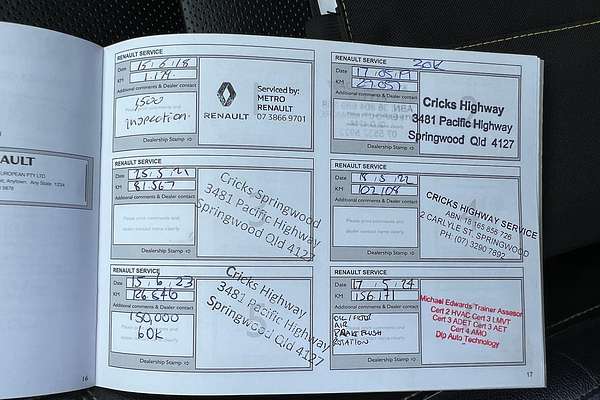 AULT
EUROPEAN PTY LTD
Anytown, Any State 1234
5678
16
RENAULT SERVICE
Date 15.6.18
KM 1.179
Additional comments & Dealer contact
1500
inspection.
Dealership Stamp
RENAULT
Serviced by:
METRO
RENAULT
07 3866 9701
RENAULT SERVICE
Date 25.5.21
KM 81.567
Additional comments & Dealer contact
Please print comments and
dealer contact name clearly
Dealership Stamp
Cricks Springwood
3481 Pacific Highway
Springwood Qld 4127
RENAULT SERVICE
Date 15.6.23
KM 126846
Additional comments & Dealer contact
150,000
60K
Dealership Stamp
Cricks Highway
3481 Pacific Highway
Springwood Qld 4127
RENAULT SERVICE
20K
Date 17.05.19
KM 29057
Additional comments & Dealer contact
Please print comments and
dealer contact name clearly
Dealership Stamp
Cricks Highway
3481 Pacific Highway
Springwood Qld 4127
RENAULT SERVICE
Date 18.5.22
KM 107108
Additional comments & Dealer contact
Please print comments and
dealer contact name clearly
Dealership Stamp
CRICKS HIGHWAY SERVICE
ABN: 18 165 856 726
2 CARLYLE ST, SPRINGWOOD
PH: (07) 3290 7892
RENAULT SERVICE
Date 17.5.24
KM 156171
Additional comments & Dealer contact
OIL/FILTER
AIR
BRAKE FLUSH
ROTATION
Dealership Stamp
Michael Edwards Trainer Assessor
Cert 2 HVAC Cert 3 LMVT
Cert 3 ADET Cert 3 AET
Cert 4 AMO
Dip Auto Technology
17